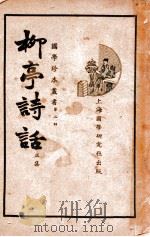 國學珍本叢書
柳亭詩話
上海國學研究社出版